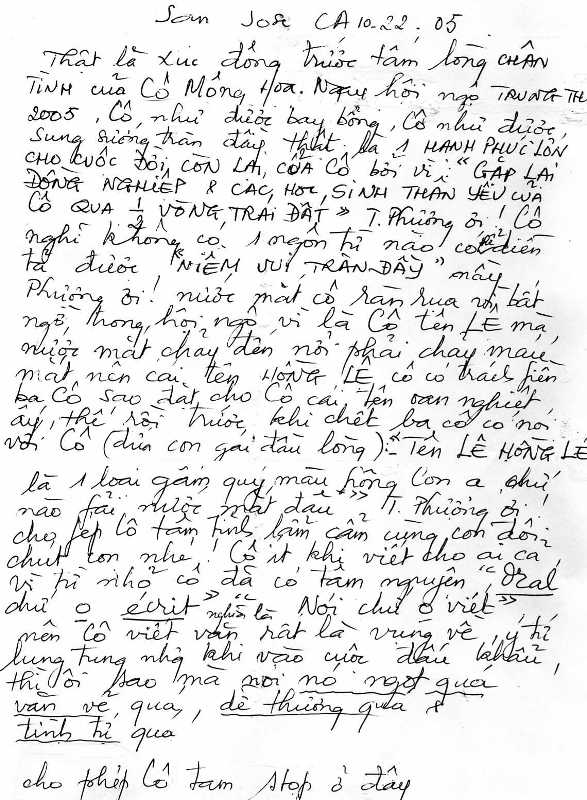 San Jose CA 10-22-05.
Thật là xúc động trước tấm lòng CHÂN
TÌNH của Cô Mông Hoa. Ngay hội ngộ TRUNG THU
2005, Cô như được bay bổng, Cô như được
sung sướng tràn đầy thật là 1 HẠNH PHÚC LỚN
CHO CUỘC ĐỜI CÒN LẠI CỦA CÔ bởi vì "GẶP LẠI
ĐỒNG NGHIỆP & CÁC HỌC SINH THÂN YÊU CỦA
CÔ QUA 1/2 VÒNG TRÁI ĐẤT" T. Phương ơi! Cô
nghĩ không có 1 ngôn từ nào có thể diễn
tả được "NIỀM VUI TRÀN ĐẦY" này
Phương ơi! nước mắt cô ràn rụa vì bất
ngờ, trong hội ngộ vì là Cô tên LỆ mà
nước mắt chảy đến nỗi phải chảy máu
mắt nên cái tên HỒNG LỆ cô có trách
ba Cô sao đặt cho Cô cái tên oan nghiệt
ấy, thế rồi trước khi chết ba cô có nói
với Cô (đứa con gái đầu lòng): "Tên LÊ HỒNG LỆ
là 1 loại gấm quý màu hồng con ạ chứ
nào phải nước mắt đâu" T. Phương ơi!
cho phép Cô tâm tình lẩm cẩm cùng con đôi
chút con nhé! Cô ít khi viết cho ai cả
vì từ nhỏ cô đã có tâm nguyện "Oral
chứ 0 écrit" nghĩa là Nói chứ 0 viết"
nên Cô viết văn rất là vụng về, ý tứ
lung tung nhưng khi vào cuộc đấu khẩu
thì ôi sao mà nói nó ngọt quá
văn vẻ quá, dễ thương quá &
tình tứ quá
cho phép Cô tạm stop ở đây